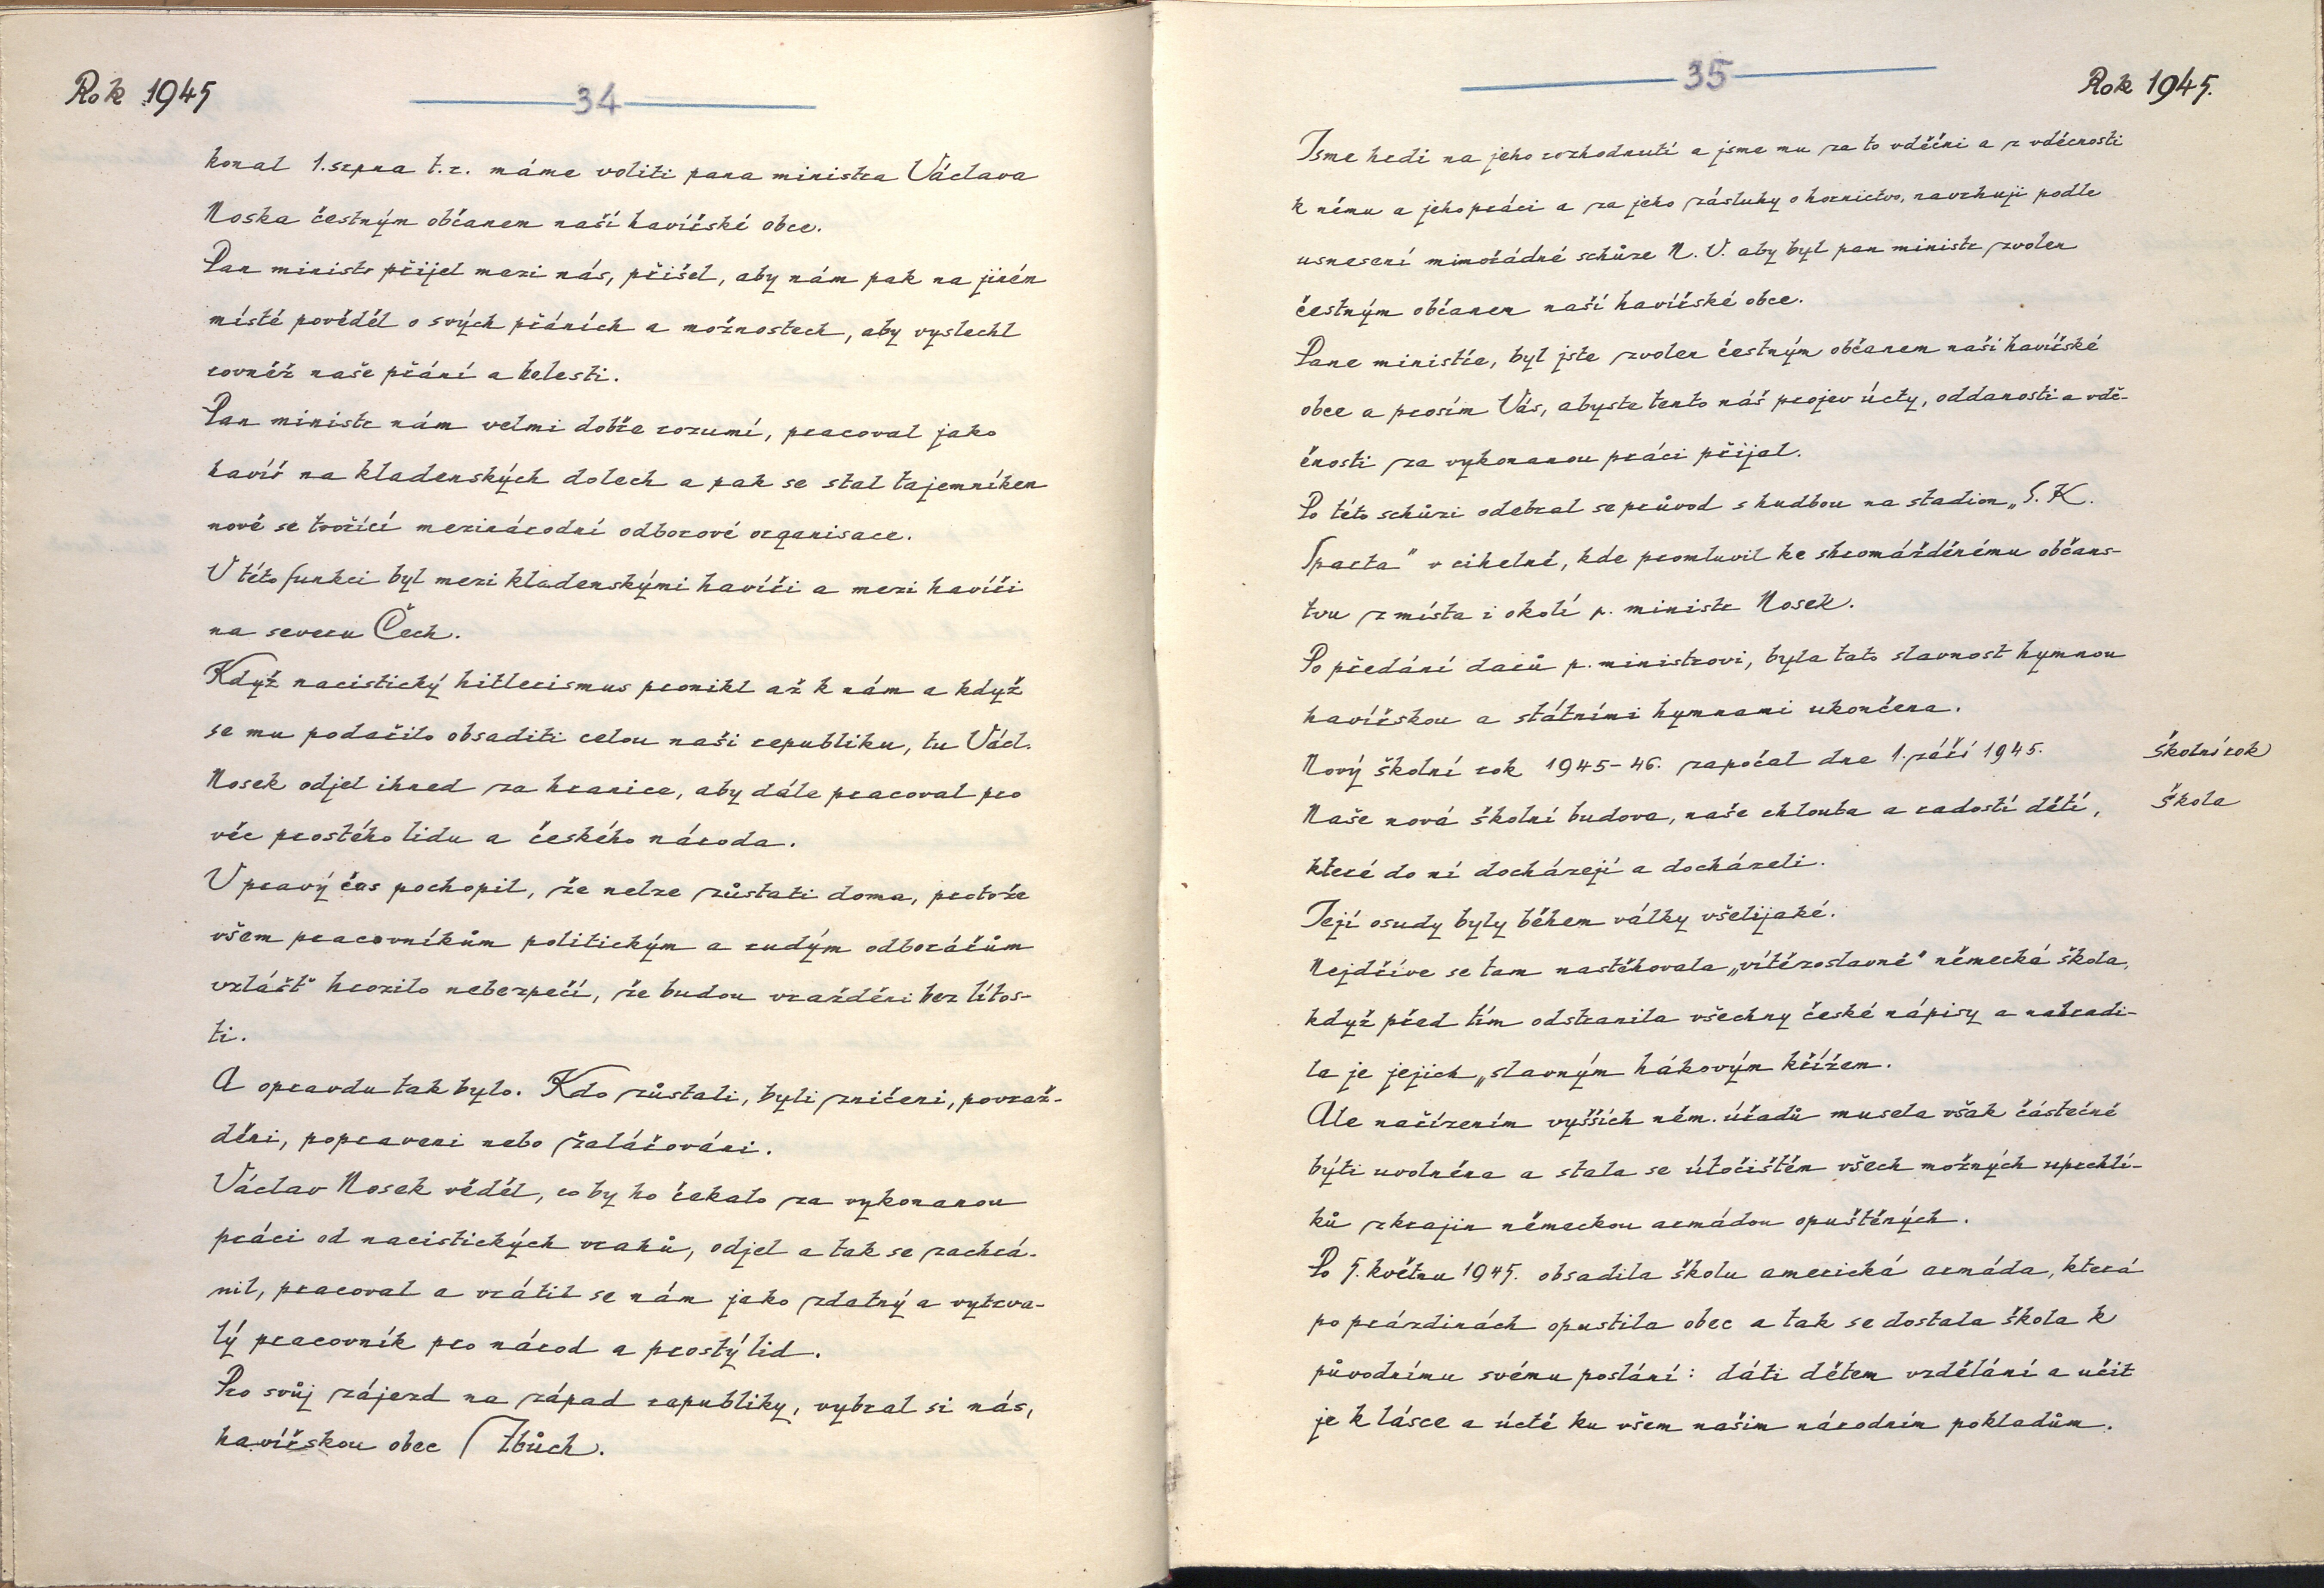 Rok 1945
34
konal 1. srpna t.r. máme voliti pana ministra Václava
Noska čestným občanem naší havířské obce.
Pan ministr přijel mezi nás, přišel, aby nám pak na jiném
místě pověděl o svých přáních a možnostech, aby vyslechl
rovněž naše přání a bolesti.
Pan ministr nám velmi dobře rozumí, pracoval jako
havíř na kladenských dolech a pak se stal tajemníkem
nově se tvořící mezinárodní odborové organisace.
V této funkci byl mezi kladenskými havíři a mezi havíři
na severu Čech.
Když nacistický hitlerismus pronikl až k nám a když
se mu podařilo obsaditi celou naši republiku, tu Václ.
Nosek odjel ihned za hranice, aby dále pracoval pro
věc prostého lidu a českého národa.
V pravý čas pochopil, že nelze zůstati doma, protože
všem pracovníkům politickým a rudým odborářům
vzlášť hrozilo nebezpečí, že budou vražděni bez lítos-
ti.
A opravdu tak bylo. Kdo zůstali, byli zničeni, povraž-
děni, popraveni nebo žalářováni.
Václav Nosek věděl, co by ho čekalo za vykonanou
práci od nacistických vrahů, odjel a tak se zachrá-
nil, pracoval a vrátil se nám jako zdatný a vytrva-
lý pracovník pro národ a prostý lid.
Pro svůj zájezd na západ republiky, vybral si nás,
havířskou obec Zbůch.
35
Rok 1945.
Jsme hrdi na jeho rozhodnutí a jsme mu za to vděčni a z vděčnosti
k němu a jeho práci a za jeho zásluhy o hornictvo, navrhuji podle
usnesení mimořádné schůze N. V. aby byl pan ministr zvolen
čestným občanem naší havířské obce.
Pane ministře, byl jste zvolen čestným občanem naší havířské
obce a prosím Vás, abyste tento náš projev úcty, oddanosti a vdě-
čnosti za vykonanou práci přijal.
Po této schůzi odebral se průvod s hudbou na stadion „S. K.
Sparta" v cihelně, kde promluvil ke shromážděnému občans-
tvu z místa i okolí p. ministr Nosek.
Po předání darů p. ministrovi, byla tato slavnost hymnou
havířskou a státními hymnami ukončena.
Nový školní rok 1945-46. započal dne 1. září 1945.
školní rok
Naše nová školní budova, naše chlouba a radostí dětí,
škola
které do ní docházejí a docházeli.
Její osudy byly během války všelijaké.
Nejdříve se tam nastěhovala „vítězoslavně" německá škola,
když před tím odstranila všechny české nápisy a nahradi-
la je jejich „slavným hákovým křížem.
Ale nařízením vyšších něm. úřadů musela však částečně
býti uvolněna a stala se útočištěm všech možných uprchlí-
ků z krajin německou armádou opuštěných.
Po 5. květnu 1945. obsadila školu americká armáda, která
po prázdinách opustila obec a tak se dostala škola k
původnímu svému poslání: dáti dětem vzdělání a učit
je k lásce a úctě ku všem našim národním pokladům.